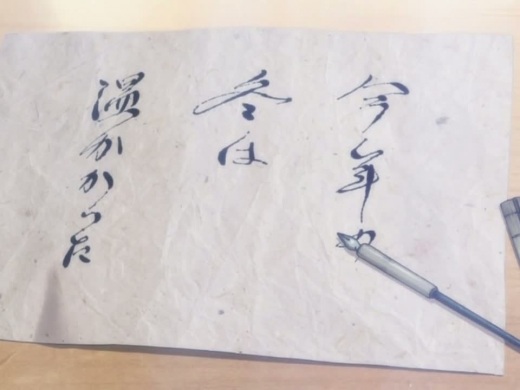 今年の
冬は
温かかった